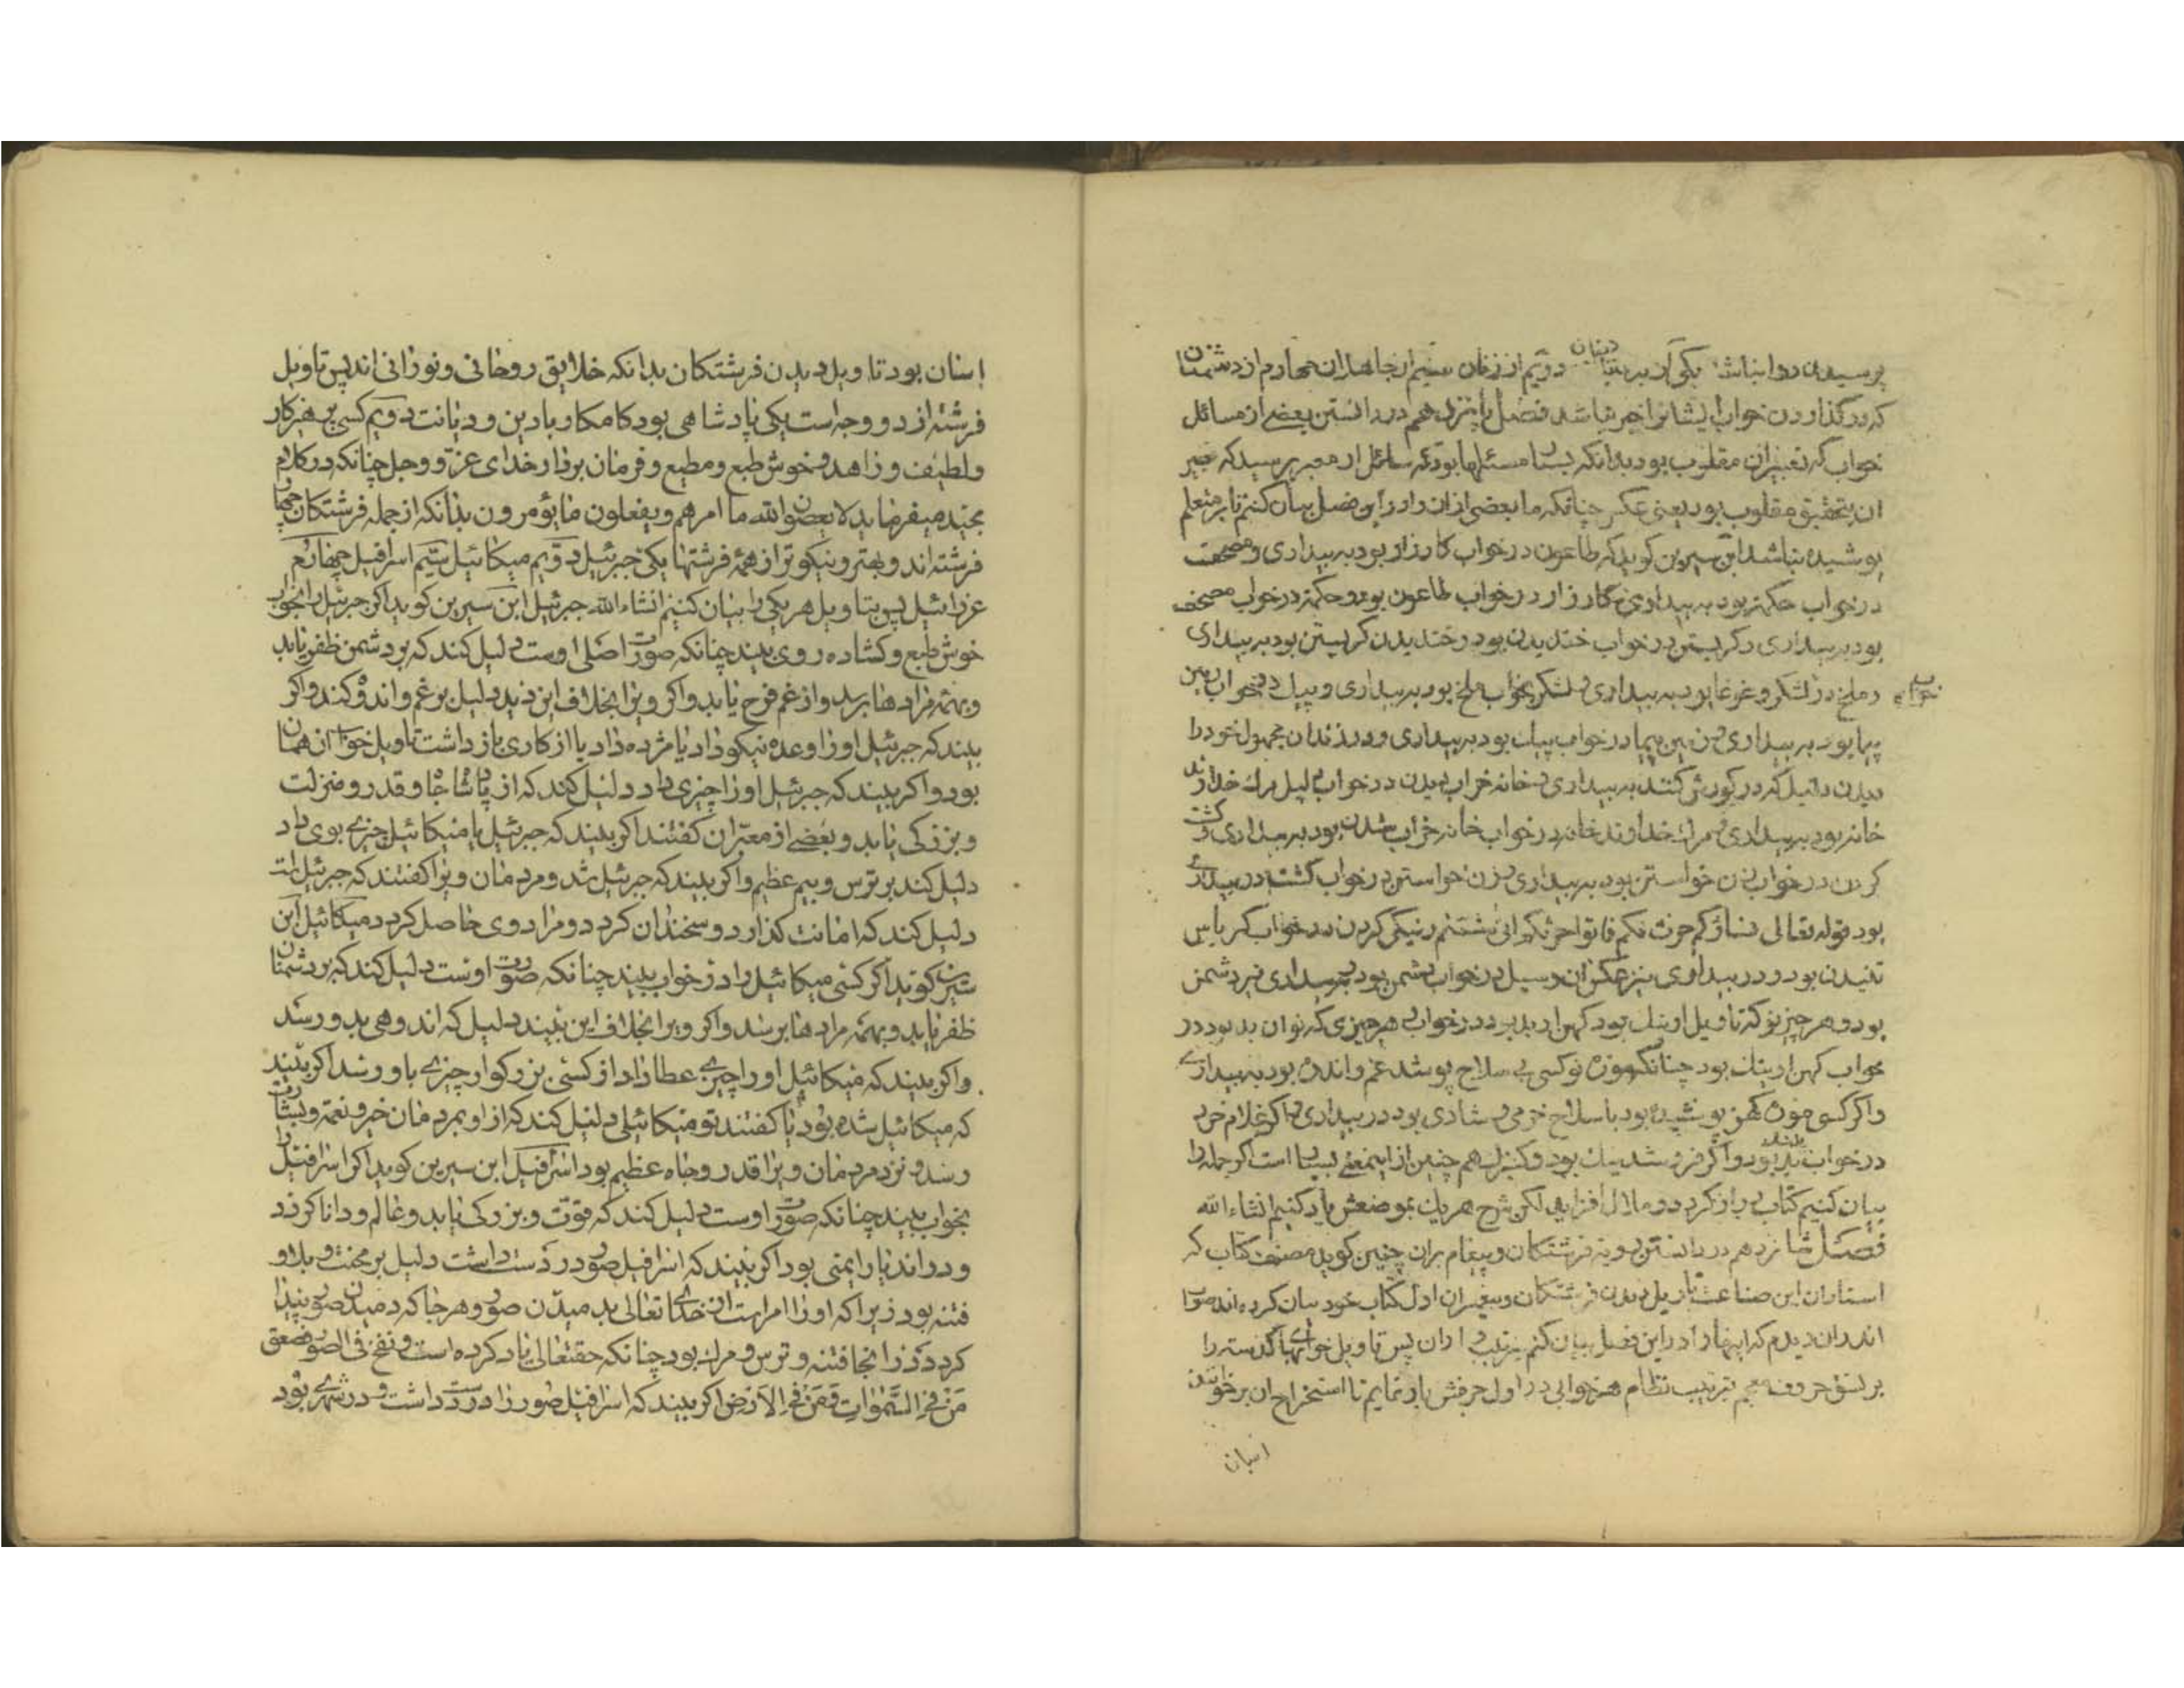 پرسیدن روا نباشد یکی از بی دینان دویم از زنان سیم از جاهلان چهارم از دشمنان
که در کذاردن خواب ایشانرا خیر نباشد فصل پانزدهم در دانستن بعضے از مسائل
خواب که تعبیران مقلوب بود بدانکه بسیار مسئلها بود که سائل از معبر پرسید که تعبیر
ان بتحقیق مقلوب بود یعنی عکس چنانکه ما بعضی ازان را درین فصل بیان کنیم تا بر متعلم
پوشیده نباشد ابن سیرین کوید که طاعون در خواب کارزار بود به بیداری و مصحف
در خواب حکمة بود به بیداری و کارزار در خواب طاعون بود و حکمة در خواب مصحف
بود به بیداری و کریستن در خواب خندیدن بود و خندیدن کریستن بود به بیداری
و ملخ در لشکر و غوغا بود به بیداری و لشکر بخواب ملخ بود به بیداری و پیک در خواب زمین
پیما بود به بیداری و زمین پیما در خواب پیک بود به بیداری و در زندان مجهول خود را
دیدن دلیل که در کورش کنند به بیداری و خانه خراب دیدن در خواب دلیل مرك خداوند
خانه بود به بیداری و مرك خداوند خانه در خواب خانه خراب شدن بود به بیداری و کشت
کردن در خواب زن خواستن بود به بیداری و زن خواستن در خواب کشت در بیداری
بود قوله تعالی نساؤکم حرث لکم فاتوا حرثکم انی شئتم و نیکی کردن در خواب کرباس
تنیدن بود و در بیداری نیز عکس ان و سیل در خواب دشمن بود به بیداری نیز دشمن
بود و هر چیز نو که تاویل او نیك بود کهن او بد بود در خواب و هر چیزی که نو ان بد بود در
خواب کهن او نیك بود چنانکه موزه نو کسی بی سلاح پوشد غم و اندوه بود به بیداری
واکر کسی موزه کهن پوشیده بود با سلاح خرمی و شادی بود در بیداری و اکر غلام خرد
در خواب بد بود واکر فروشد نیك بود و کنیزك هم چنین از اینمعنی بسیار است اکر جمله را
بیان کنیم کتاب دراز کردد و ملال افزاید لکن شرح هر یك بموضعش یاد کنیم انشاء الله
فصل شانزدهم در دانستن رویة فرشتکان و پیغامبران چنین کوید مصنف کتاب که
استادان این صناعت تاویل دیدن فرشتکان و پیغمبران اول کتاب خود بیان کرده اند صواب
اندران دیدم که اینها را درین فصل بیان کنم بترتیب و ازان پس تاویل خوابها
بر نسق حروف معجم بترتیب نظام هر خوابی در اول حرفش یاد نمایم تا استخراج ان بر خواننده
اسان
اسان بود تاویل دیدن فرشتکان بدانکه خلایق روحانی و نورانی اند پس تاویل
فرشته از دو وجه است یکی پادشاهی بود کامکار و بادین و دیانت دویم کسی پرهیزکار
و لطیف و زاهد و خوش طبع و مطیع و فرمان بردار خدای عز و وجل چنانکه در کلام
مجید میفرماید لا یعصون الله ما امرهم و یفعلون ما یؤمرون بدانکه از جمله فرشتکان چهار
فرشته اند و بهتر و نیکوتر از همه فرشتها یکی جبرئیل دویم میکائیل سیّم اسرافیل چهارم
عزرائیل پس بتاویل هر یکی را بیان کنیم انشاء الله جبرئیل ابن سیرین کوید اکر جبرئیل را بخواب
خوش طبع و کشاده روی بیند چنانکه صورت اصلی اوست دلیل کند که بر دشمن ظفر یابد
و بهمه مرادها برسد و از غم فرح یابد واکر ویرا بخلاف این دید دلیل بر غم و اندوه کند واکر
بیند که جبرئیل اورا وعده نیکو داد یا مژده داد یا از کاری باز داشت تاویل خواب ان همان
بود واکر بیند که جبرئیل اورا چیزی داد دلیل کند که از پادشاه جاه و قدر و منزلت
و بزرکی یابد و بعضے از معبران کفتند اکر بیند که جبرئیل یا میکائیل چیزے بوی داد
دلیل کند بر ترس و بیم عظیم واکر بیند که جبرئیل شد و مردمان ویرا کفتند که جبرئیل است
دلیل کند که امانت کذارد و سخندان کردد و مراد وی حاصل کردد میکائیل ابن
سیرین کوید اکر کسی میکائیل را در خواب بیند چنانکه صورت اوست دلیل کند که بر دشمنان
ظفر یابد و بهمه مرادها برسد واکر ویرا بخلاف این بیند دلیل که اندوهی بدو رسد
واکر بیند که میکائیل اورا چیزے عطا داد از کسی بزرکوار چیزے باو رسد اکر بیند
که میکائیل شده بود یا کفتند تو میکائیلی دلیل کند که از او بمردمان خیر و نعمة و بشارت
رسد و نزد مردمان ویرا قدر و جاه عظیم بود اسرافیل ابن سیرین کوید اکر اسرافیل را
بخواب بیند چنانکه صورت اوست دلیل کند که قوّت و بزرکی یابد و عالم و دانا کردد
و دراندیار ایمنی بود اکر بیند که اسرافیل صور در دست داشت دلیل بر محنت و بلا و
فتنه بود زیرا که اورا امر است از خدای تعالی بدمیدن صور و هر جا که دمیدن صور پیدا
کردد در انجا فتنه و ترس و مرك بود چنانکه حقتعالی یاد کرده است و نفخ فی الصور فصعق
مَنْ فِی السَّمٰوٰاتِ وَمَنْ فِی الاَرْضِ اکر بیند که اسرافیل صور را در دست داشت و در شهرے بود